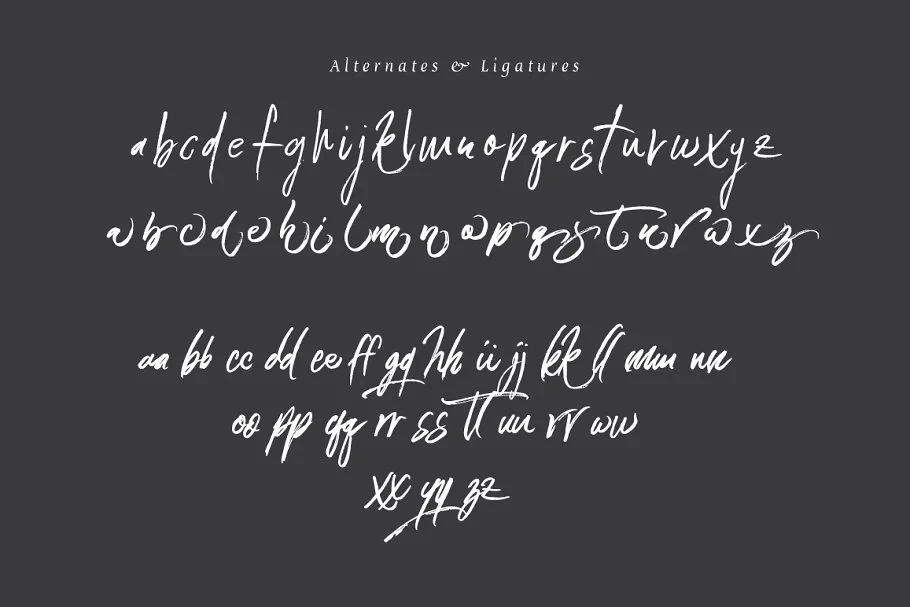 Alternates & Ligatures
abcdefghijklmnopqrstuvwxyz
abcdehilmnopqsturwxz
aa bb cc dd ee ff gg hh ii jj kk ll mm nn
oo pp qq rr ss tt uu vv ww
xx yy zz